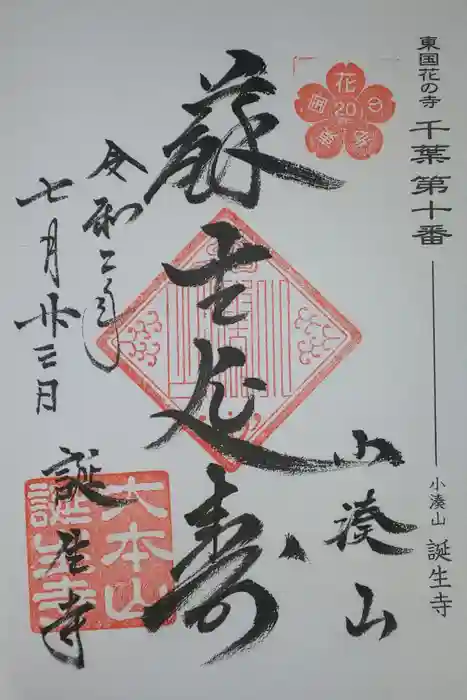 東国花の寺 千葉第十番 小湊山 誕生寺
東国花の寺
20
小湊山
蘇生延寿
令和二年
七月廿三日
誕生寺
大本山
誕生寺